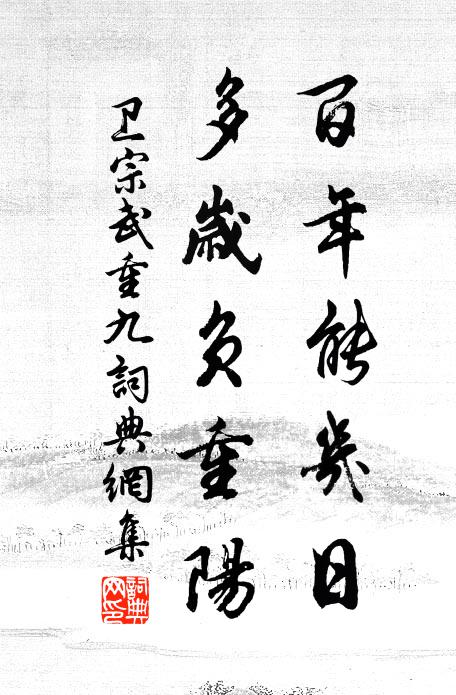 百年能幾日
多歲負重陽
卫宗武重九詞典網集
詞典网印